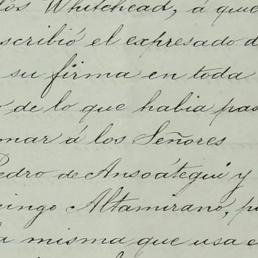 los Whitehead, á quie
scribió el expresado d
su firma en toda
de lo que habia pas
mar á los Señores
Pedro de Ansoátegui y
ingo Altamirano, p
la misma que usa e